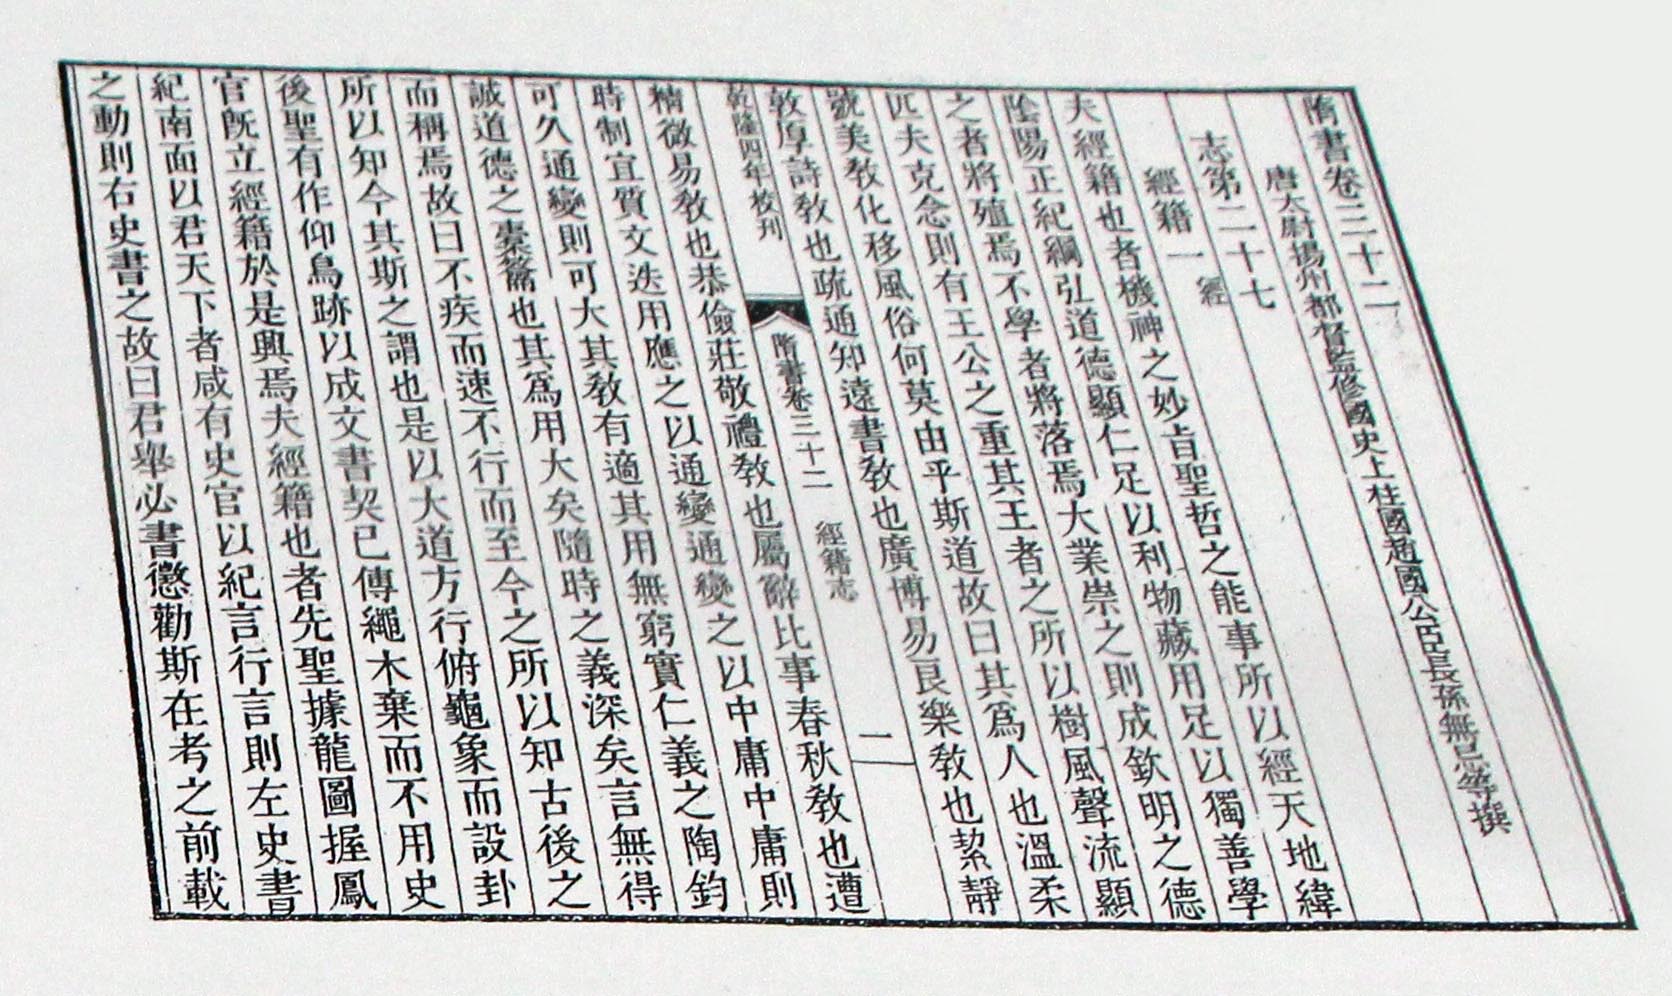 隋書卷三十二
唐太尉揚州都督監修國史上柱國趙國公臣長孫無忌等撰
志第二十七
經籍一 經
夫經籍也者機神之妙㫖聖哲之能事所以經天地緯
陰陽正紀綱弘道德顯仁足以利物藏用足以獨善學
之者將殖焉不學者將落焉大業崇之則成欽明之德
匹夫克念則有王公之重其王者之所以樹風聲流顯
號美敎化移風俗何莫由乎斯道故曰其爲人也溫柔
敦厚詩敎也疏通知遠書敎也廣博易良樂敎也絜靜
乾隆四年校刊 隋書卷三十二 經籍志 一
精微易敎也恭儉莊敬禮敎也屬辭比事春秋敎也遭
時制宜質文迭用應之以通變通變之以中庸中庸則
可久通變則可大其敎有適其用無窮實仁義之陶鈞
誠道德之橐籥也其爲用大矣隨時之義深矣言無得
而稱焉故曰不疾而速不行而至今之所以知古後之
所以知今其斯之謂也是以大道方行俯龜象而設卦
後聖有作仰鳥跡以成文書契已傳繩木棄而不用史
官旣立經籍於是興焉夫經籍也者先聖據龍圖握鳳
紀南面以君天下者咸有史官以紀言行言則左史書
之動則右史書之故曰君舉必書懲勸斯在考之前載